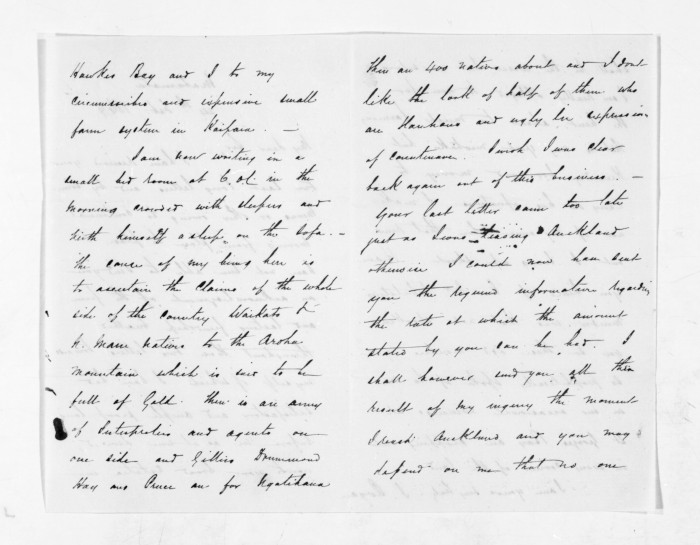 Hawkes Bay and I to my
circumscribed and expensive small
farm system in Kaipara. —
I am now writing in a
small bed room at 6. o'c in the
morning crowded with sleepers and
himself asleep on the sofa. —
The cause of my being here is
to ascertain the claims of the whole
side of the country Waikato &
N. Maru natives to the Aroha
mountain which is said to be
full of Gold. There is an army
of Interpreters and agents on
one side and Gillies Drummond
Hay and Preece are for Ngatihaua
There are 400 natives about and I dont
like the look of half of them who
are Hauhaus and ugly in expression
of countenance. I wish I was clear
back again out of this business. —
Your last letter came too late
just as I was leaving Auckland
otherwise I could now have sent
you the required information regarding
the rate at which the amount
stated by you can be had. I
shall however send you all the
result of my inquiry the moment
I reach Auckland and you may
depend on me that no one